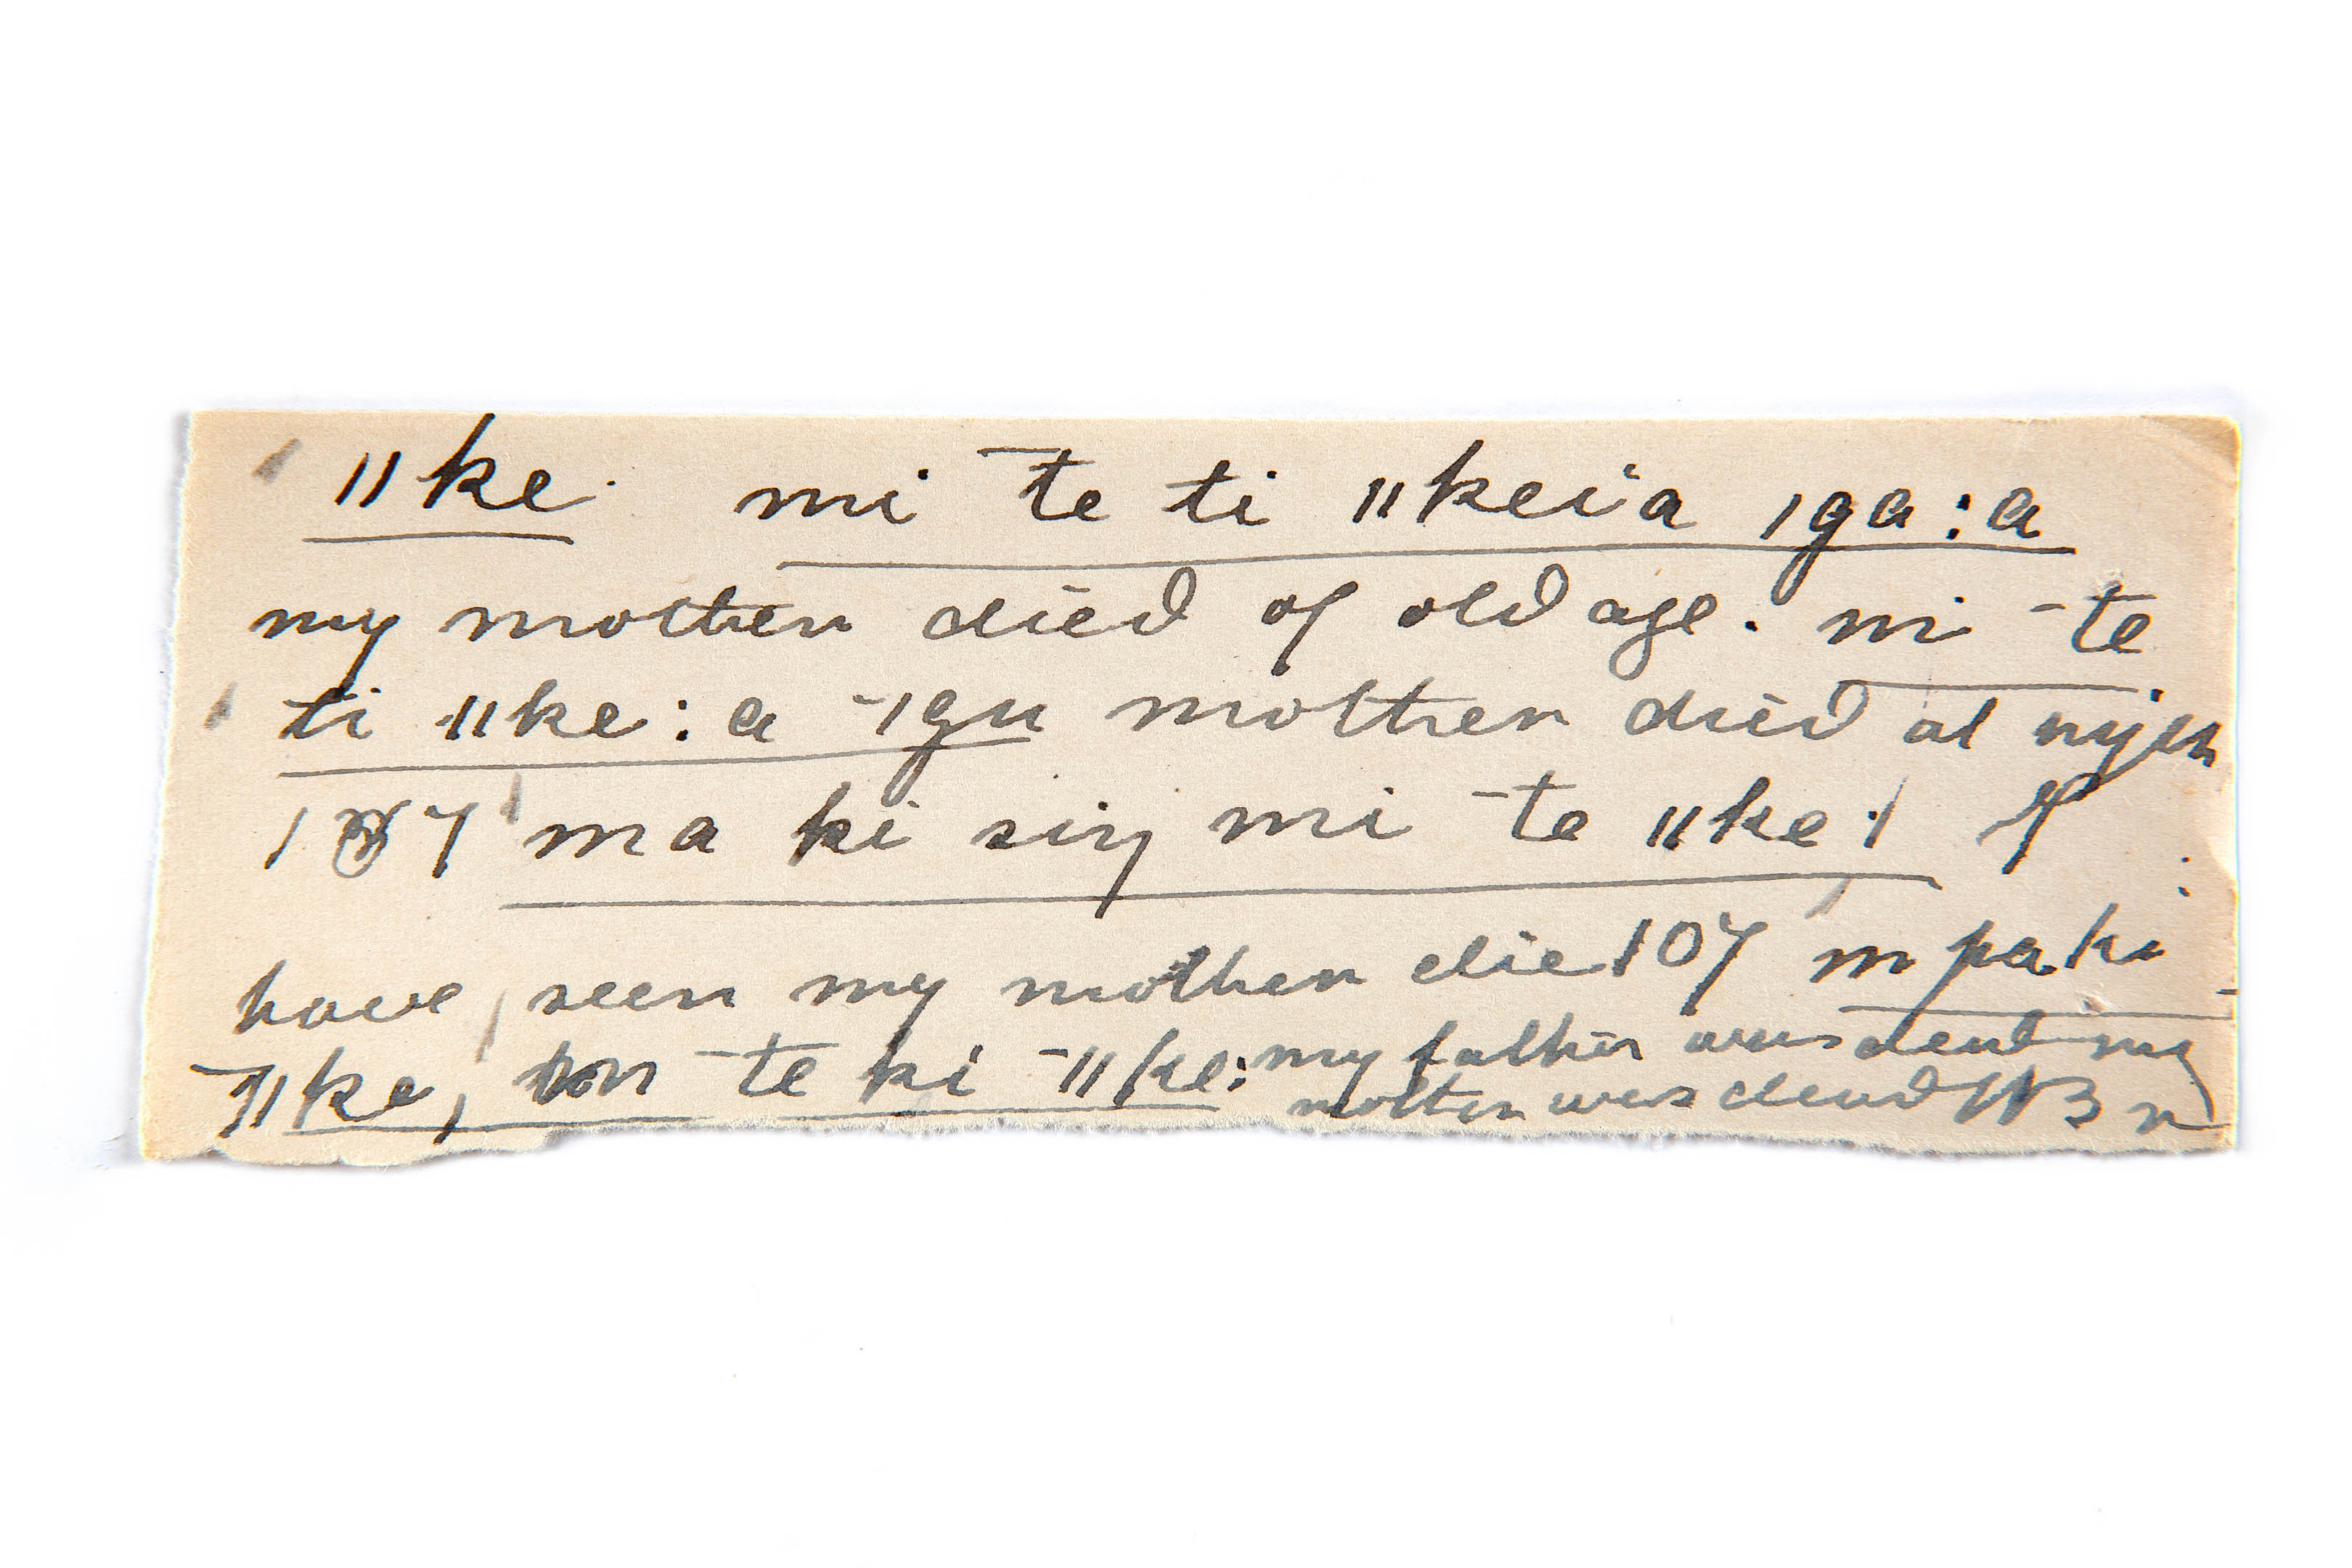 ǁke. mi ˉte ti ǁkeia ˌga:a
my mother died of old age. mi ˉte
ti ǁke:a ˉˌgu mother died at
107 ma ki siŋ mi ˉte ǁke: I
have seen my mother die 107 m pa ki
ˉǁke, n ˉte ki ˉǁke: my father was dead my
mother was dead